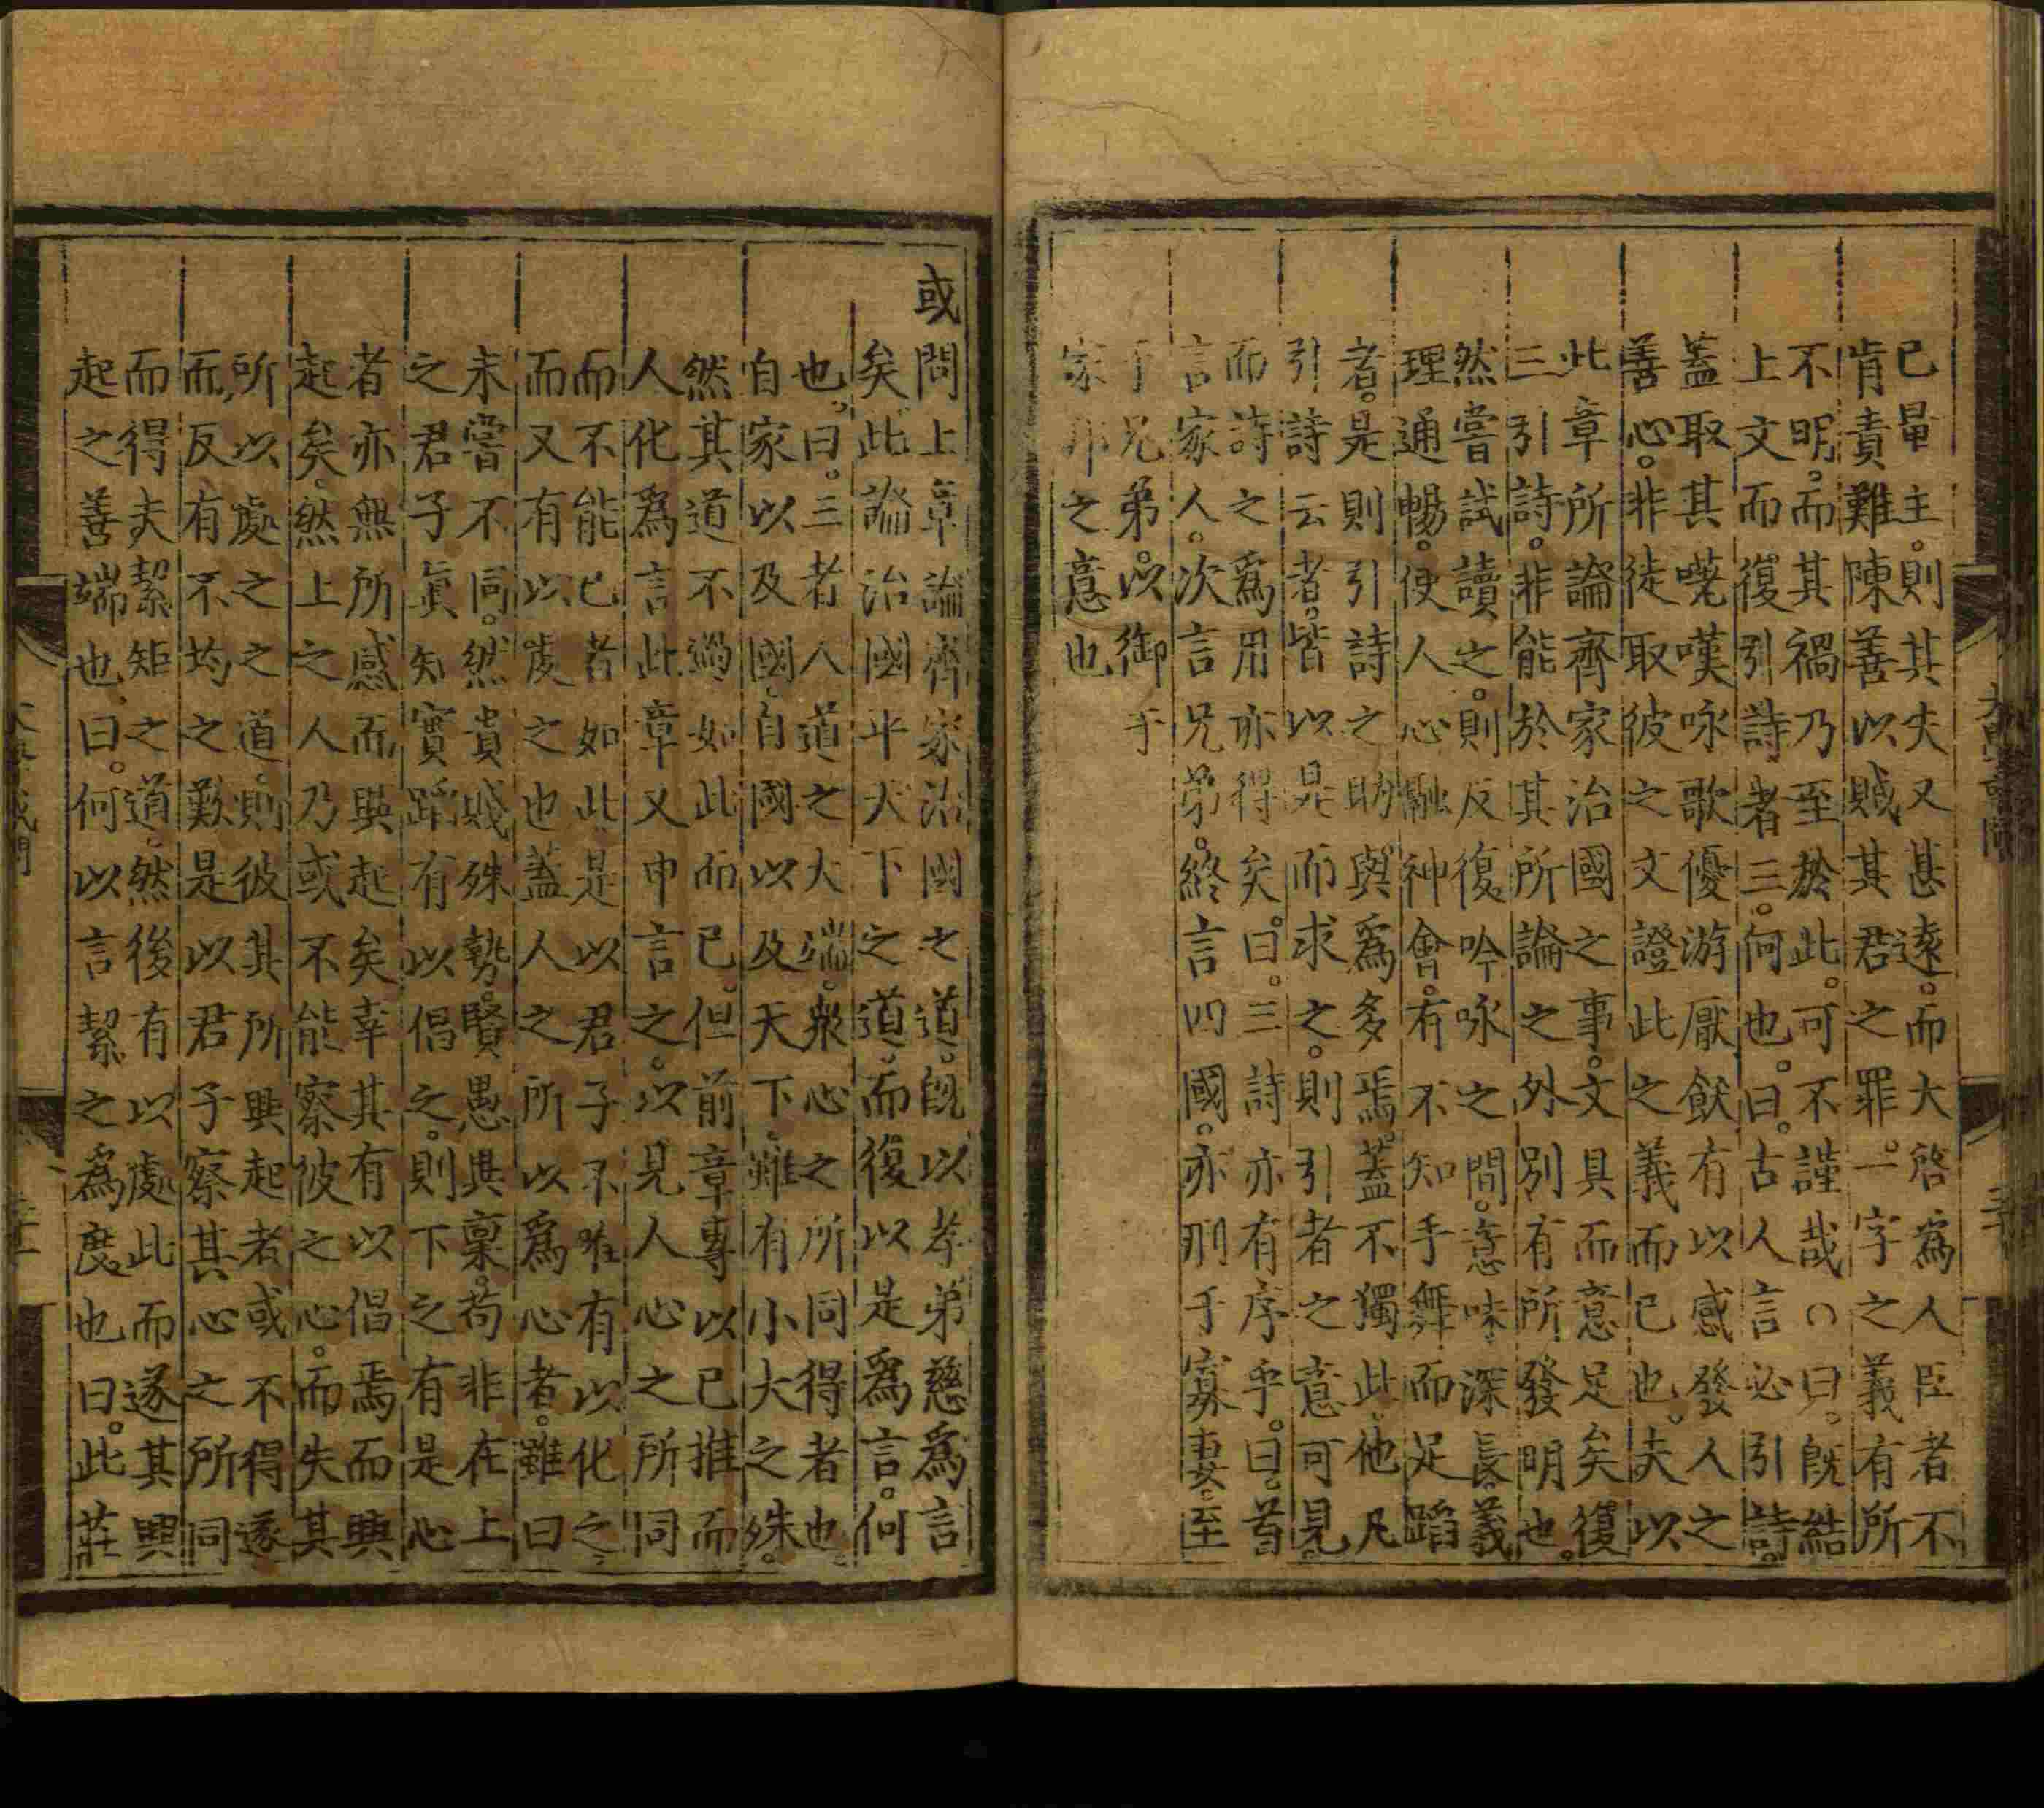 已量主。則其失又甚遠。而大啓爲人臣者不
肯責難陳善以賊其君之罪。一字之義有所
不明。而其禍乃至於此。可不謹哉○曰。旣結
上文而復引詩者三。何也。曰。古人言必引詩。
蓋取其嗟嘆咏歌優游厭飫有以感發人之
善心。非徒取彼之文證此之義而已也。夫以
此章所論齊家治國之事。文具而意足矣復
三引詩。非能於其所論之外別有所發明也。
然嘗試讀之。則反復吟咏之間。意味深長。義
理通暢。使人心融神會。有不知手舞而足蹈
者。是則引詩之助。與爲多焉。蓋不獨此。他凡
引詩云者。皆以是而求之。則引者之意可見。
而詩之爲用亦得矣。曰。三詩亦有序乎。曰。首
言家人。次言兄弟。終言四國。亦刑于寡妻。至
于兄弟。以御乎
家邦之意也
或問上章論齊家治國之道。旣以孝弟慈爲言
矣。此論治國平天下之道。而復以是爲言。何
也。曰。三者人道之大端。衆心之所同得者也。
自家以及國。自國以及天下。雖有小大之殊。
然其道不過如此而已。但前章專以己推而
人化爲言此章又申言之。以見人心之所同
而不能已者如此。是以君子不唯有以化之。
而又有以處之也蓋人之所以爲心者。雖曰
未嘗不同。然貴賤殊勢。賢愚異稟。苟非在上
之君子眞知實蹈有以倡之。則下之有是心
者亦無所感而興起矣幸其有以倡焉而興
起矣。然上之人乃或不能察彼之心。而失其
所以處之之道。則彼其所興起者或不得遂
而反有不均之歎。是以君子察其心之所同
而得夫絜矩之道。然後有以處此而遂其興
起之善端也。曰。何以言絜之爲度也曰。此莊